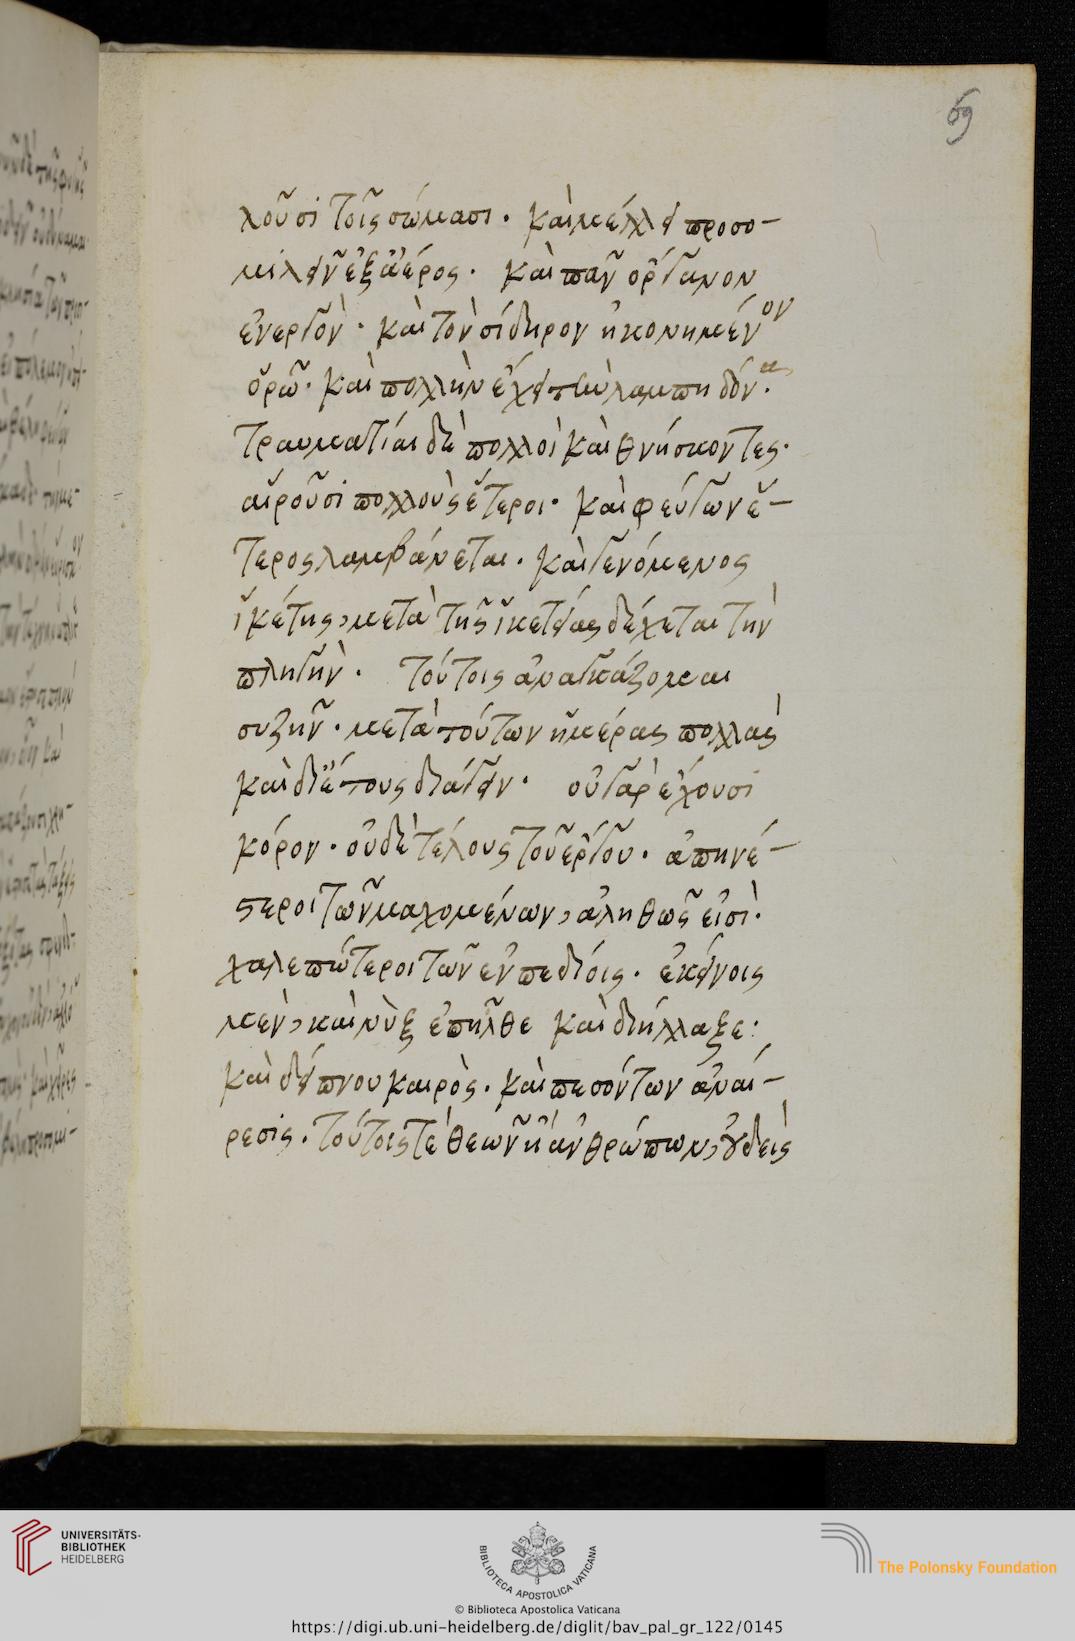 69
λοῦσι τοῖς σώμασι· καὶ μέλλει προσο-
μιλεῖν ἐξ ἀέρος· καὶ πᾶν ὄργανον
ἐνεργόν· καὶ τὸν σίδηρον ἠκονημένον
ὁρῶ· καὶ πολλὴν ἔχει τὴν λαμπηδόνα·
τραυματίαι δὲ πολλοὶ καὶ θνήσκοντες·
αἱροῦσι πολλοὺς ἕτεροι· καὶ φεύγων ἕ-
τερος λαμβάνεται· καὶ γενόμενος
ἱκέτης, μετὰ τῆς ἱκετείας δέχεται τὴν
πληγήν· τούτοις ἀναγκάζομαι
συζῆν· μετὰ τούτων ἡμέρας πολλὰς
καὶ δι' ἔτους διάγειν· οὐ γὰρ ἔχουσι
κόρον· οὐδὲ τέλους τοῦ ἔργου· ἀπηνέ-
στεροι τῶν μαχομένων, ἀληθῶς εἰσὶ·
χαλεπώτεροι τῶν ἐν πεδίοις· ἐκείνοις
μὲν, καὶ νὺξ ἐπῆλθε καὶ διήλλαξε:
καὶ δείπνου καιρὸς· καὶ πεσόντων ἀναί-
ρεσις· τούτοις τὲ θεῶν ἢ ἀνθρώπων, οὐδεὶς
UNIVERSITÄTS-
BIBLIOTHEK
HEIDELBERG
BIBLIOTECA APOSTOLICA VATICANA
The Polonsky Foundation
© Biblioteca Apostolica Vaticana
https://digi.ub.uni-heidelberg.de/diglit/bav_pal_gr_122/0145